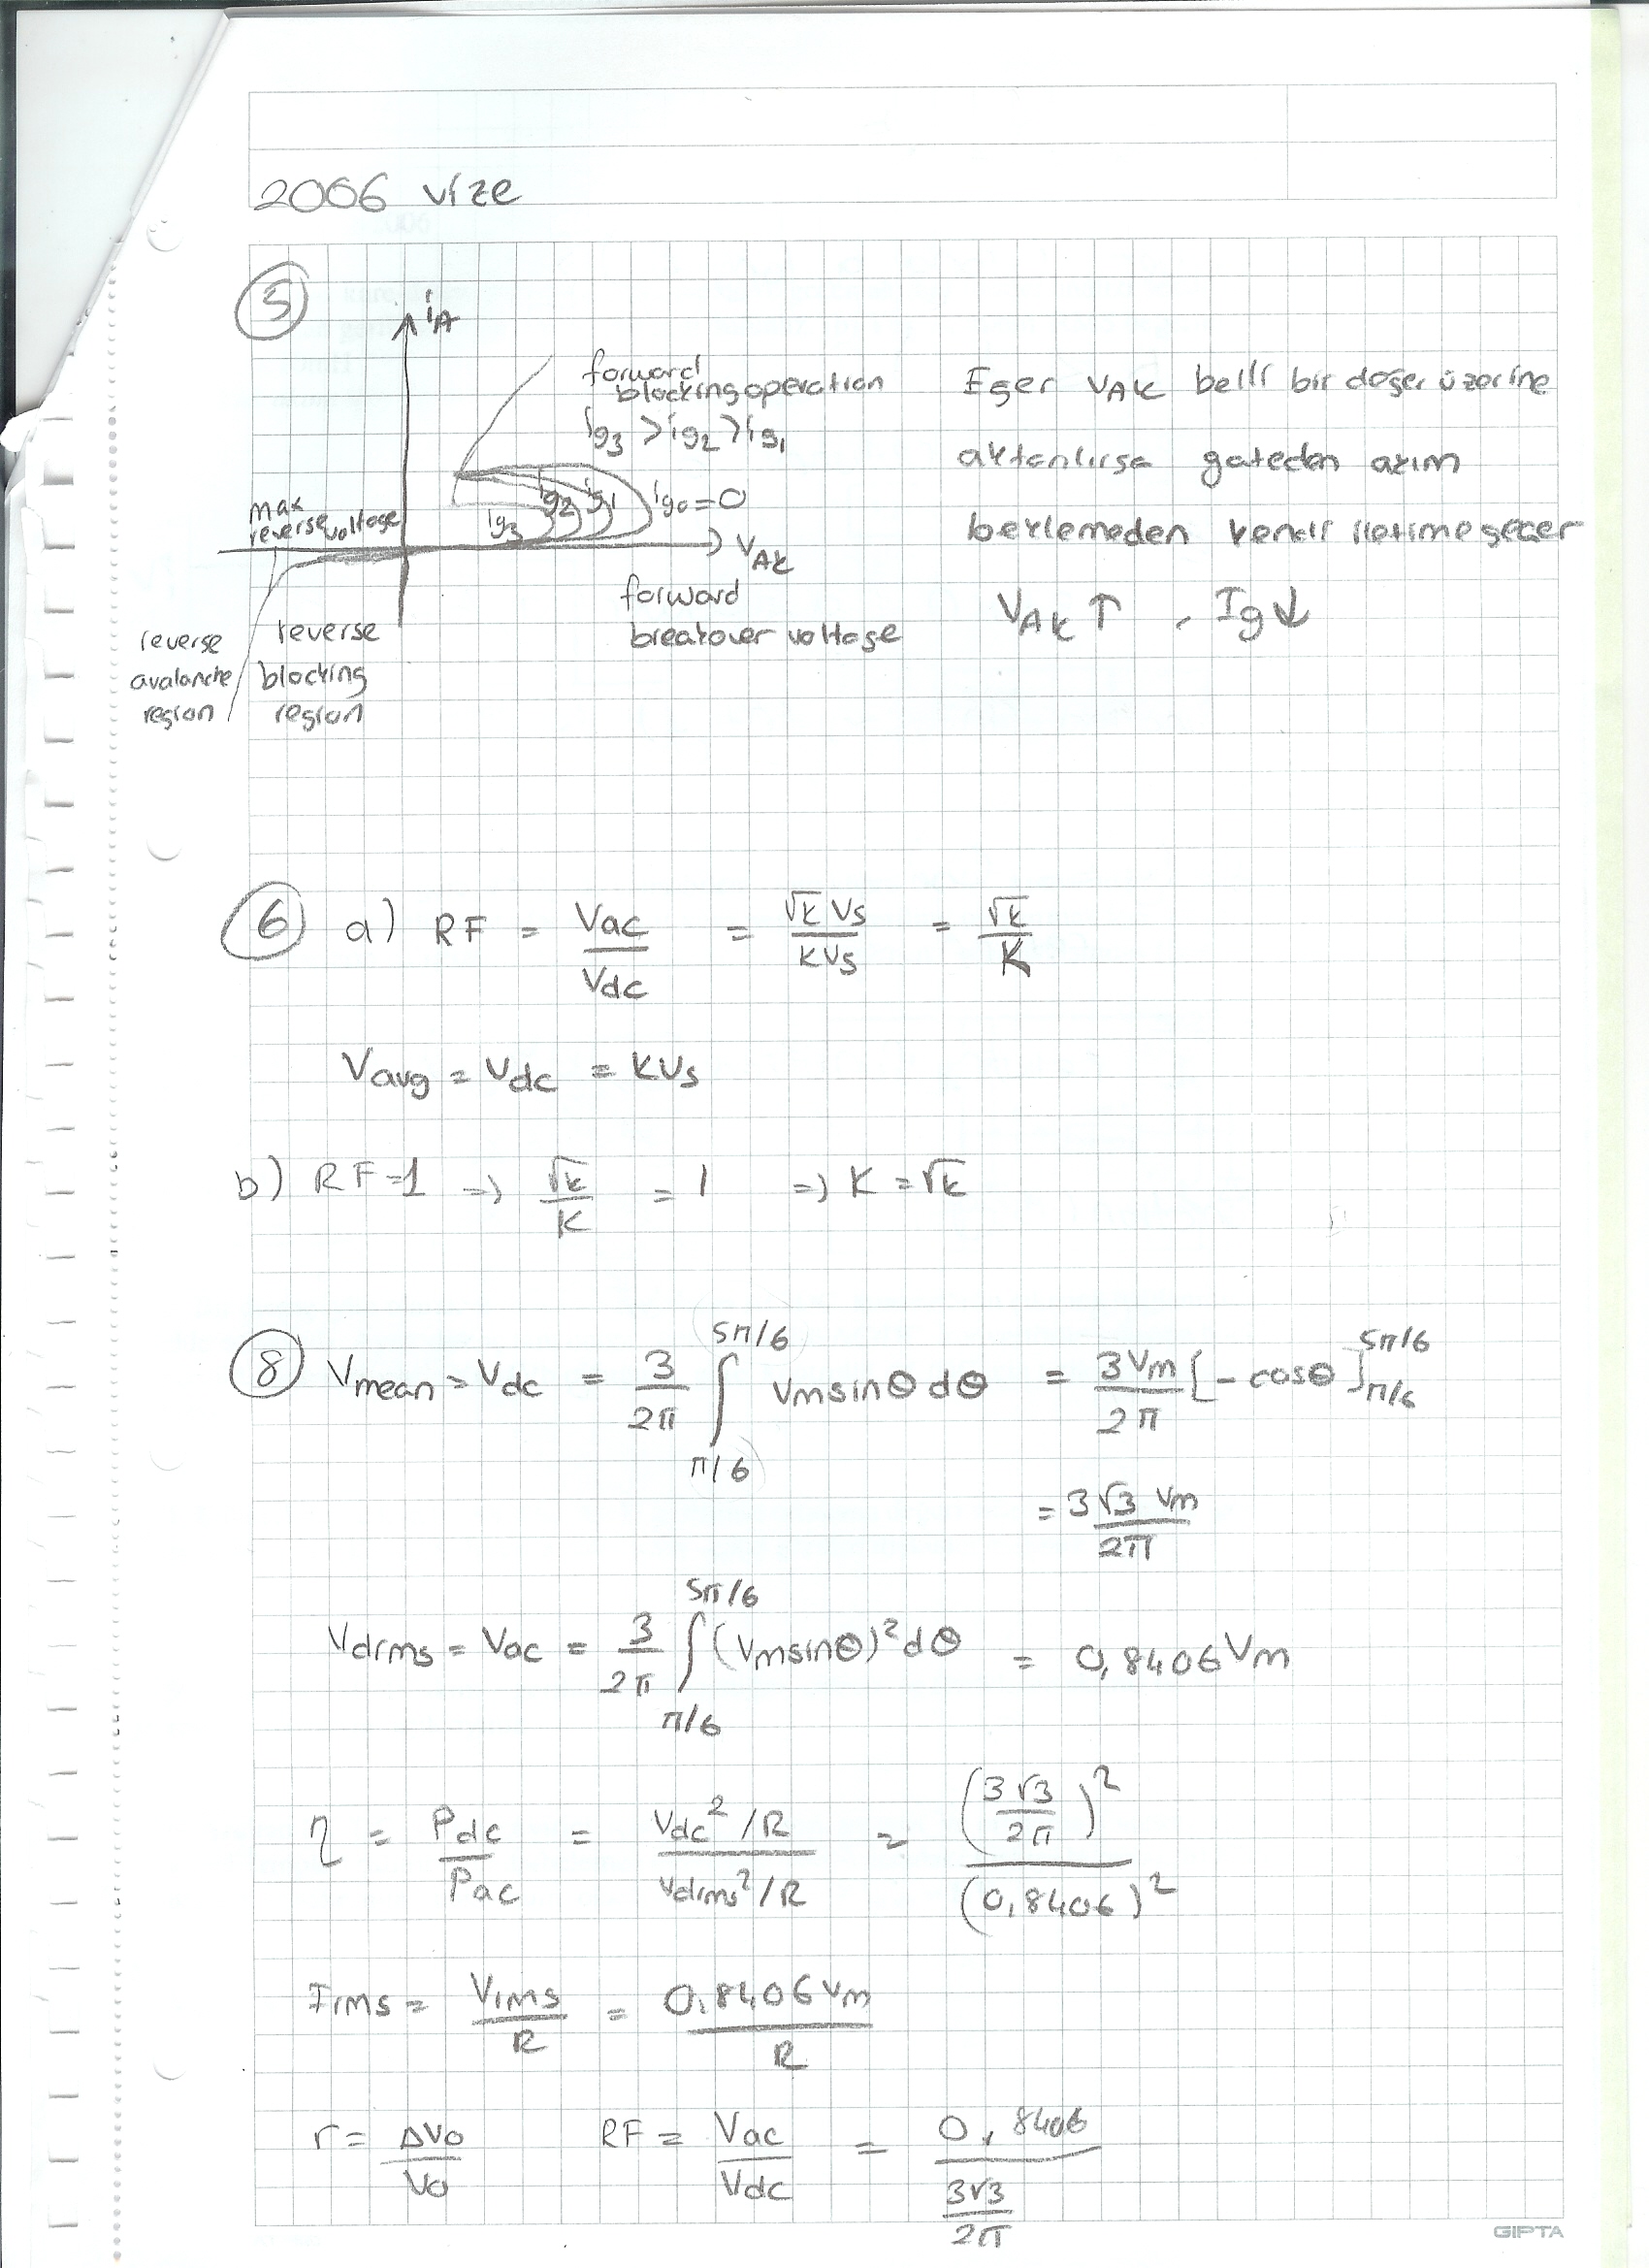 2006 vize
5
iA
forward
blocking operation
ig3 > ig2 > ig1
ig3 ig2 ig1 ig0 = 0
max
reverse voltage
VAK
forward
breakover voltage
reverse
avalanche
region
reverse
blocking
region
Eğer VAK belli bir değer üzerine
aktarılırsa gateden akım
beklemeden kendi iletime geçer
VAK ↑ , Ig ↓
6 a) RF = Vac / Vdc = √k Vs / kVs = √k / K
Vavg = Vdc = KVs
b) RF = 1 => √k / K = 1 => K = √k
8 Vmean = Vdc = 3/2π ∫π/6 5π/6 Vmsinθ dθ = 3Vm/2π [-cosθ]π/6 5π/6
= 3√3 Vm / 2π
Vdrms = Vac = 3/2π ∫π/6 5π/6 (Vmsinθ)² dθ = 0,8406 Vm
η = Pdc / Pac = Vdc²/R / Vdrms²/R = (3√3 / 2π)² / (0,8406)²
Irms = Vrms / R = 0,8406 Vm / R
r = ΔVo / Vo RF = Vac / Vdc = 0,8406 / 3√3 / 2π
GIPTA